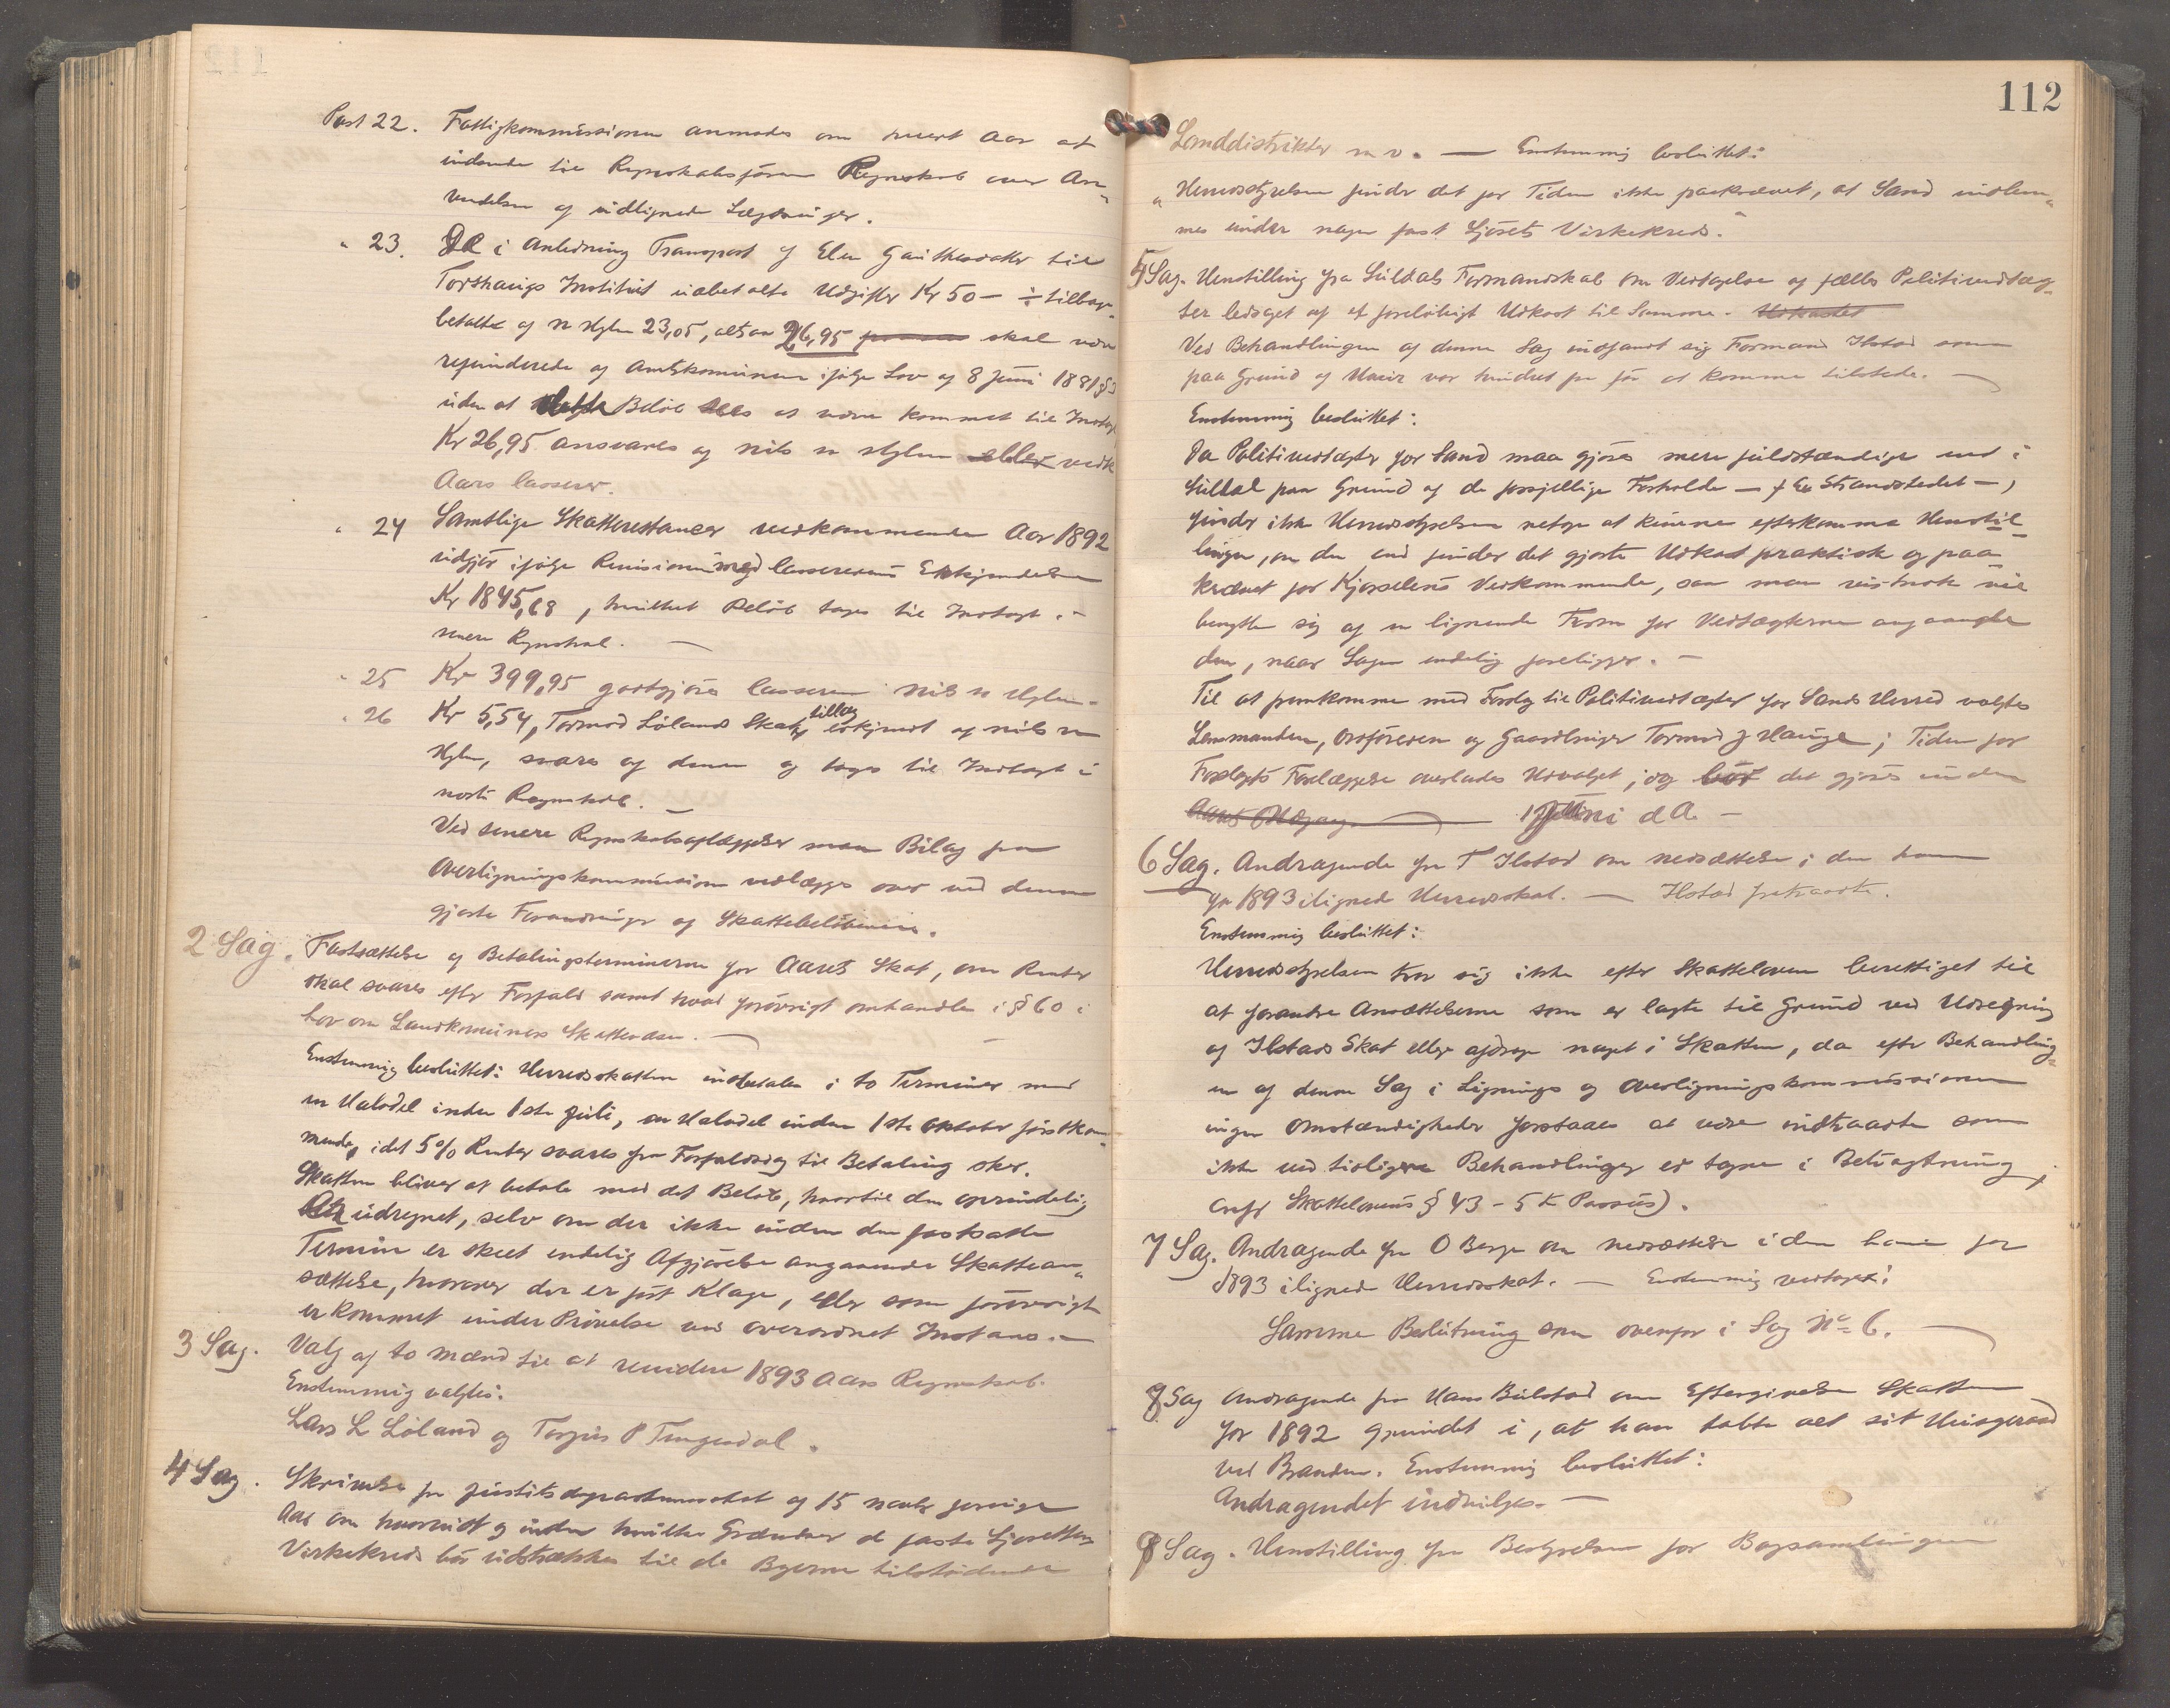 Post 22. Fattigkommissionen anmodes om hvert Aar at
indsende til Regnskabsføreren Regnskab over An-
vendelsen af udlignede Lægdsuger.
" 23. De i Anledning Transport af Elen Gauthesdatter til
Torshaugs Institut udbetalte Udgifter Kr 50 — ÷ tilbage-
betalte af N Hylen 23,05, altsaa 26,95 skal være
refunderede af Amtskommunen ifølge Lov af 8 Juni 1881 §3
uden at dette Beløb sees at være kommet til Indtægt
Kr 26,95 ansvares af Nils N Hylen eller vedk
Aars kasserer.
" 24 Samtlige Skatterestancer vedkommende Aar 1892
udgjør ifølge Revisionen med kassererens Erkjendelse
Kr 1845,68, hvilket Beløb tages til Indtægt i
senere Regnskab. —
" 25 Kr 399,95 godtgjøres kasserer Nils N Hylen.
" 26 Kr 5,54, Tormod Lølands Skattetillæg erkjendt af Nils N
Hylen, svares af denne og tages til Indtægt i
næste Regnskab. —
Ved senere Regnskabsaflæggelser maa Bilag fra
Overligningskommissionen vedlægges over ved denne
gjorte Forandringer af Skattebeløbene.
2 Sag. Fastsættelse af Betalingsterminerne for Aarets Skat, om Renter
skal svares efter Forfald samt hvad forøvrigt omhandles i § 60 i
Lov om Landkommuners Skattevæsen. —
Enstemmig besluttet: Herredsskatten indbetales i to Terminer med
en Halvdel inden 1ste Juli, en Halvdel inden 1ste Oktober førstkom-
mende, idet 5% Renter svares fra Forfaldsdag til Betaling sker.
Skatten bliver at betale med det Beløb, hvortil den oprindelig
er udregnet, selv om der ikke inden den fastsatte
Termin er skeet endelig Afgjørelse angaaende Skattean-
sættelse, hvorover der er ført Klage, eller som forøvrigt
er kommet under Prøvelse ved overordnet Instans. —
3 Sag. Valg af to Mænd til at revidere 1893 Aars Regnskab.
Enstemmig valgtes:
Lars L Løland og Torgius P Tengesdal.
4 Sag. Skrivelse fra Justitsdepartementet af 15 Novbr forrige
Aar om hvorvidt og inden hvilke Grændser de faste Sjøretters
Virkekreds bør udstrækkes til de Byerne tilstødende
112
Landdistrikter m v. — Enstemmig besluttet:
"Herredsstyrelsen finder det for Tiden ikke paakrævet, at Sand indlem-
mes under nogen fast Sjørets Virkekreds."
5 Sag. Henstilling fra Suldals Formandskab om Vedtagelse af fælles Politivedtæg-
ter ledsaget af et foreløbigt Udkast til Samme. Udkastet
Ved Behandlingen af denne Sag indfandt sig Formand Ilstad som
paa Grund af Uveir var hindret fra før at komme tilstede. —
Enstemmig besluttet:
Da Politivedtægter for Sand maa gjøres mere fuldstændige end i
Suldal paa Grund af de forsjellige Forholde — f Ex Strandstedet —,
finder ikke Herredsstyrelsen netop at kunne efterkomme Henstil-
lingen, om den end finder det gjorte Udkast praktisk og paa-
krævet for Kjørselens Vedkommende, saa man vistnok vil
benytte sig af en lignende Form for Vedtægterne angaaende
den, naar Sagen endelig foreligger. —
Til at fremkomme med Forslag til Politivedtægter for Sands Herred valgtes
Lensmanden, Ordføreren og Gaardbruger Tormod J Hauge; Tiden for
Forslagets Forelæggelse overlades Udvalget; og bør det gjøres inden
Aarets Udgang 1 Juni d A. —
6 Sag. Andragende fra T Ilstad om Nedsættelse i den ham
for 1893 ilignede Herredsskat. — Ilstad fratraadte.
Enstemmig besluttet:
Herredsstyrelsen tror sig ikke efter Skatteloven berettiget til
at forandre Ansættelserne som er lagte til Grund ved Udregning
af Ilstads Skat eller afdrage noget i Skatten, da efter Behandling-
en af denne Sag i Lignings og Overligningskommissionen
ingen Omstændigheder forstaaes at være indtraadte som
ikke ved tidligere Behandlinger er tagne i Betragtning,
(cnfr Skattelovens § 43 - 5te Passus).
7 Sag. Andragende fra O Berge om Nedsættelse i den ham for
1893 ilignede Herredsskat. — Enstemmig vedtaget:
Samme Beslutning som ovenfor i Sag No 6. —
8 Sag Andragende fra Hans Bulstad om Eftergivelse Skatten
for 1892 grundet i, at han tabte alt sit Huusgeraad
ved Branden. Enstemmig besluttet:
Andragendet indvilges. —
9 Sag. Henstilling fra Bestyrelsen for Bogsamlingen